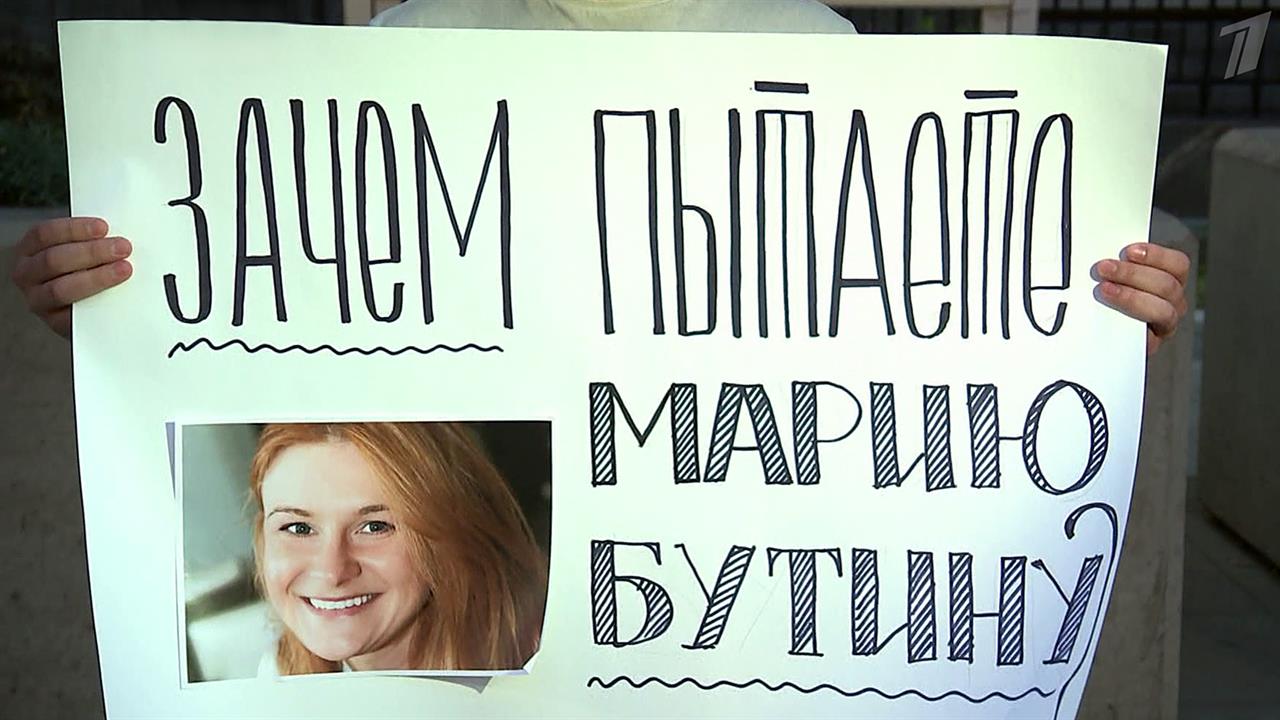 ЗАЧеМ ПЫТАеТе
МАРИЮ
БУТИНУ?